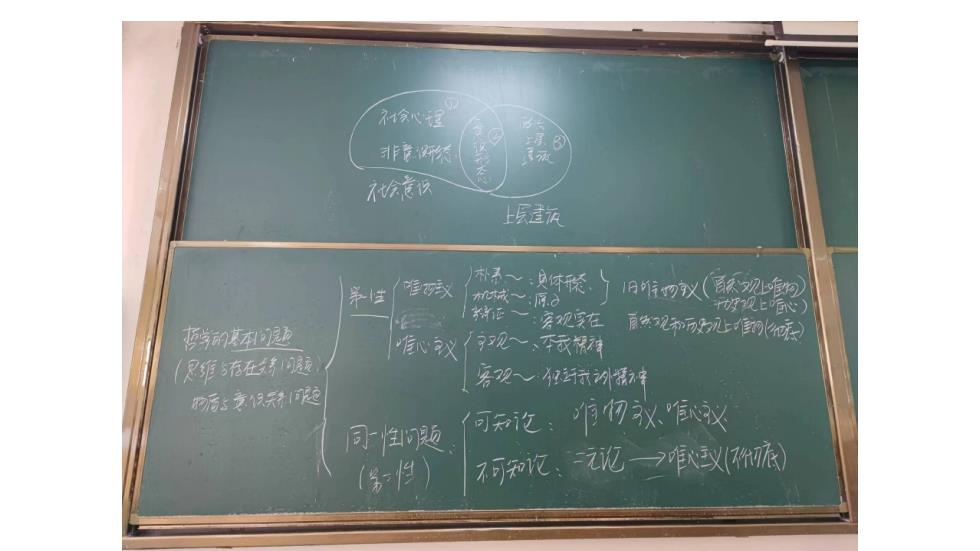 社会心理 ①
非意识形态
社会意识
意识形态 ②
政治上层建筑 ③
上层建筑
哲学的基本问题
(思维与存在关系问题
物质与意识关系问题
第一性
唯物主义
朴素~:具体形态
机械~:原子
辩证~:客观实在
旧唯物主义(自然观上唯物
历史观上唯心)
自然观和历史观上唯物(彻底)
唯心主义
主观~:本我精神
客观~:独立于我外精神
同一性问题:
(第二性)
可知论:唯物主义、唯心主义
不可知论:二元论→唯心主义(不彻底)